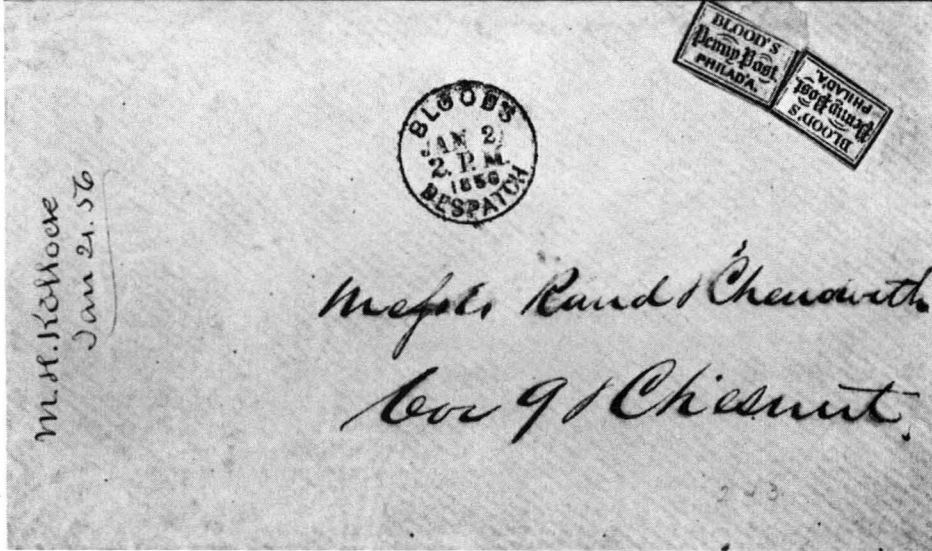 BLOOD'S
Penny Post,
PHILAD'A.
BLOOD'S
Penny Post,
PHILAD'A.
BLOOD'S
JAN 21
2. P. M.
1856
DESPATCH
M. H.
Jan 21. 56
Messrs Rand & Chenowith
Cor 9 & Chesnut.